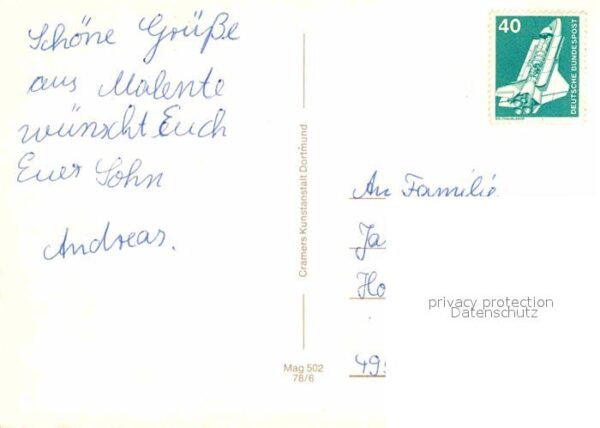 Schöne Grüße
aus Malente
wünscht Euch
Euer Sohn
Andreas.
Cramers Kunstanstalt Dortmund
Mag 502
78/6
40
DEUTSCHE BUNDESPOST
An Familie
Ja
Ho
49
privacy protection
Datenschutz